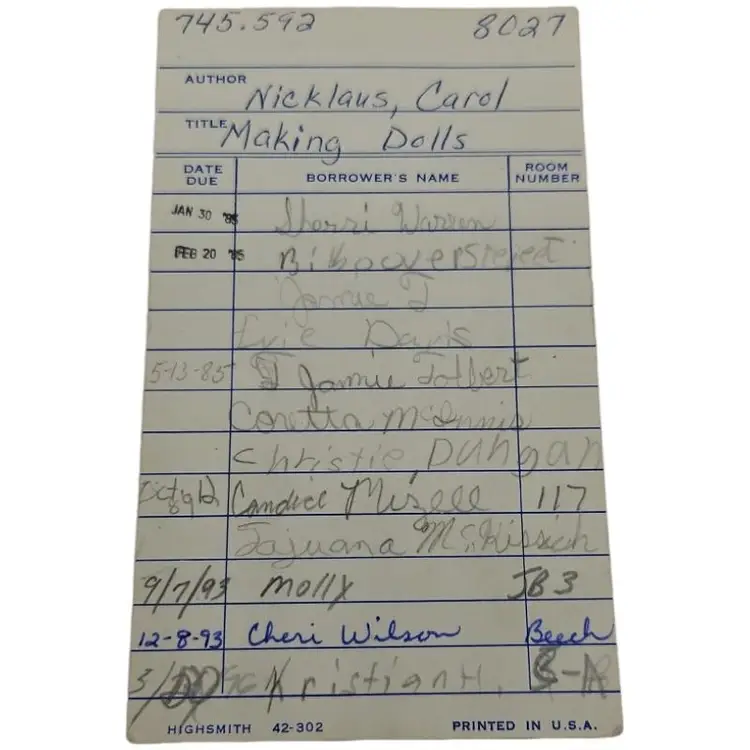 745.592 8027
AUTHOR Nicklaus, Carol
TITLE Making Dolls
DATE DUE BORROWER'S NAME ROOM NUMBER
JAN 30 '85 Sherri Warren
FEB 20 '85
Jamie T
Evie Davis
5-13-85 Jamie Tolbert
Coretta McInnis
Christie, Dungan
Oct 12 89 Candice Mizell 117
Tajuana McKissich
9/7/93 Molly JB3
12-8-93 Cheri Wilson Beech
3/ Kristian H.
HIGHSMITH 42-302 PRINTED IN U.S.A.